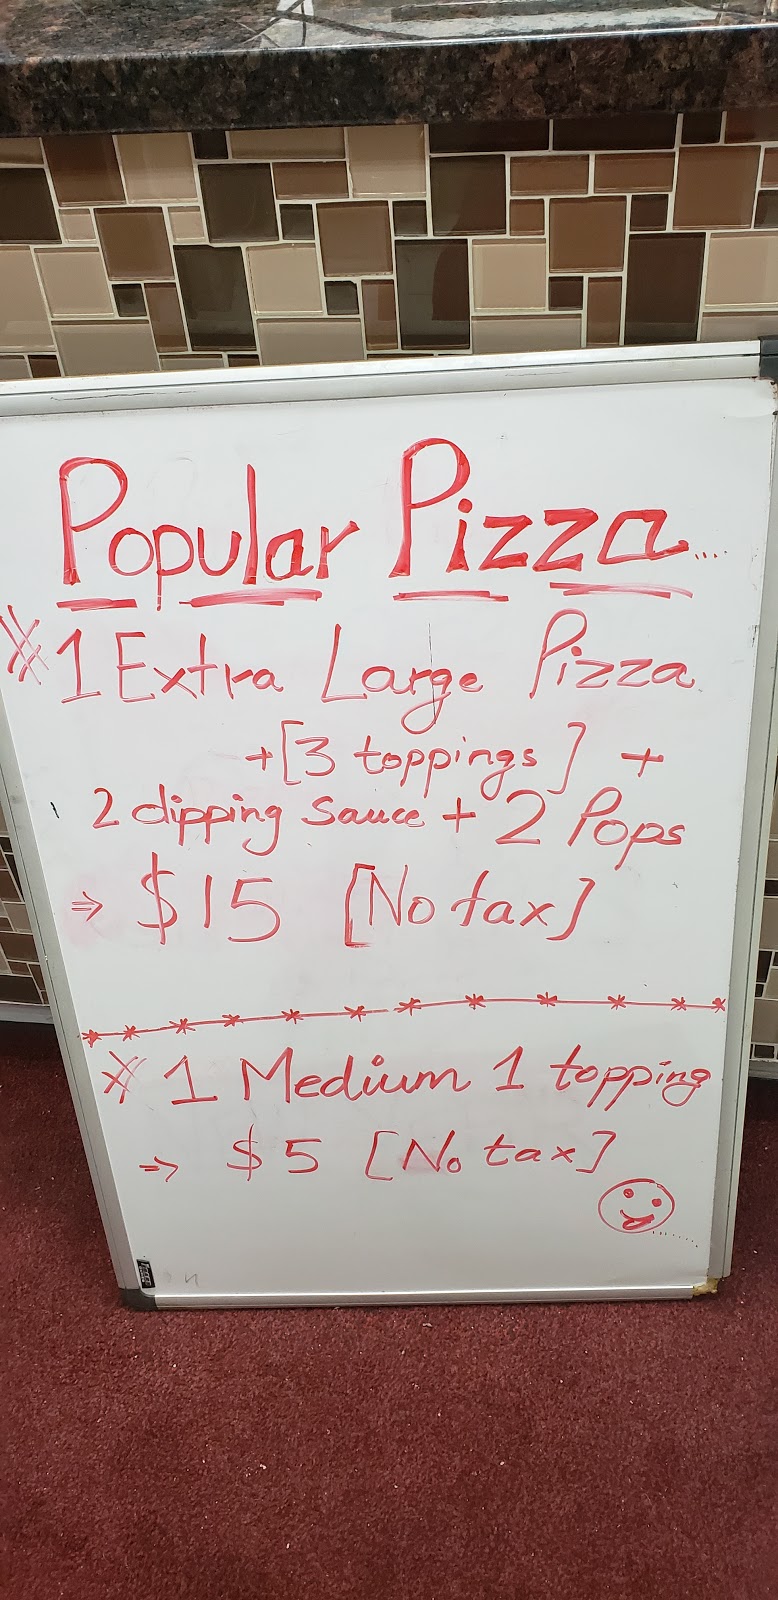 Popular Pizza....
※ 1 Extra Large Pizza
+ [3 toppings] +
2 dipping sauce + 2 Pops
⇒ $15 [No tax]
※ 1 Medium 1 topping
⇒ $5 [No tax]